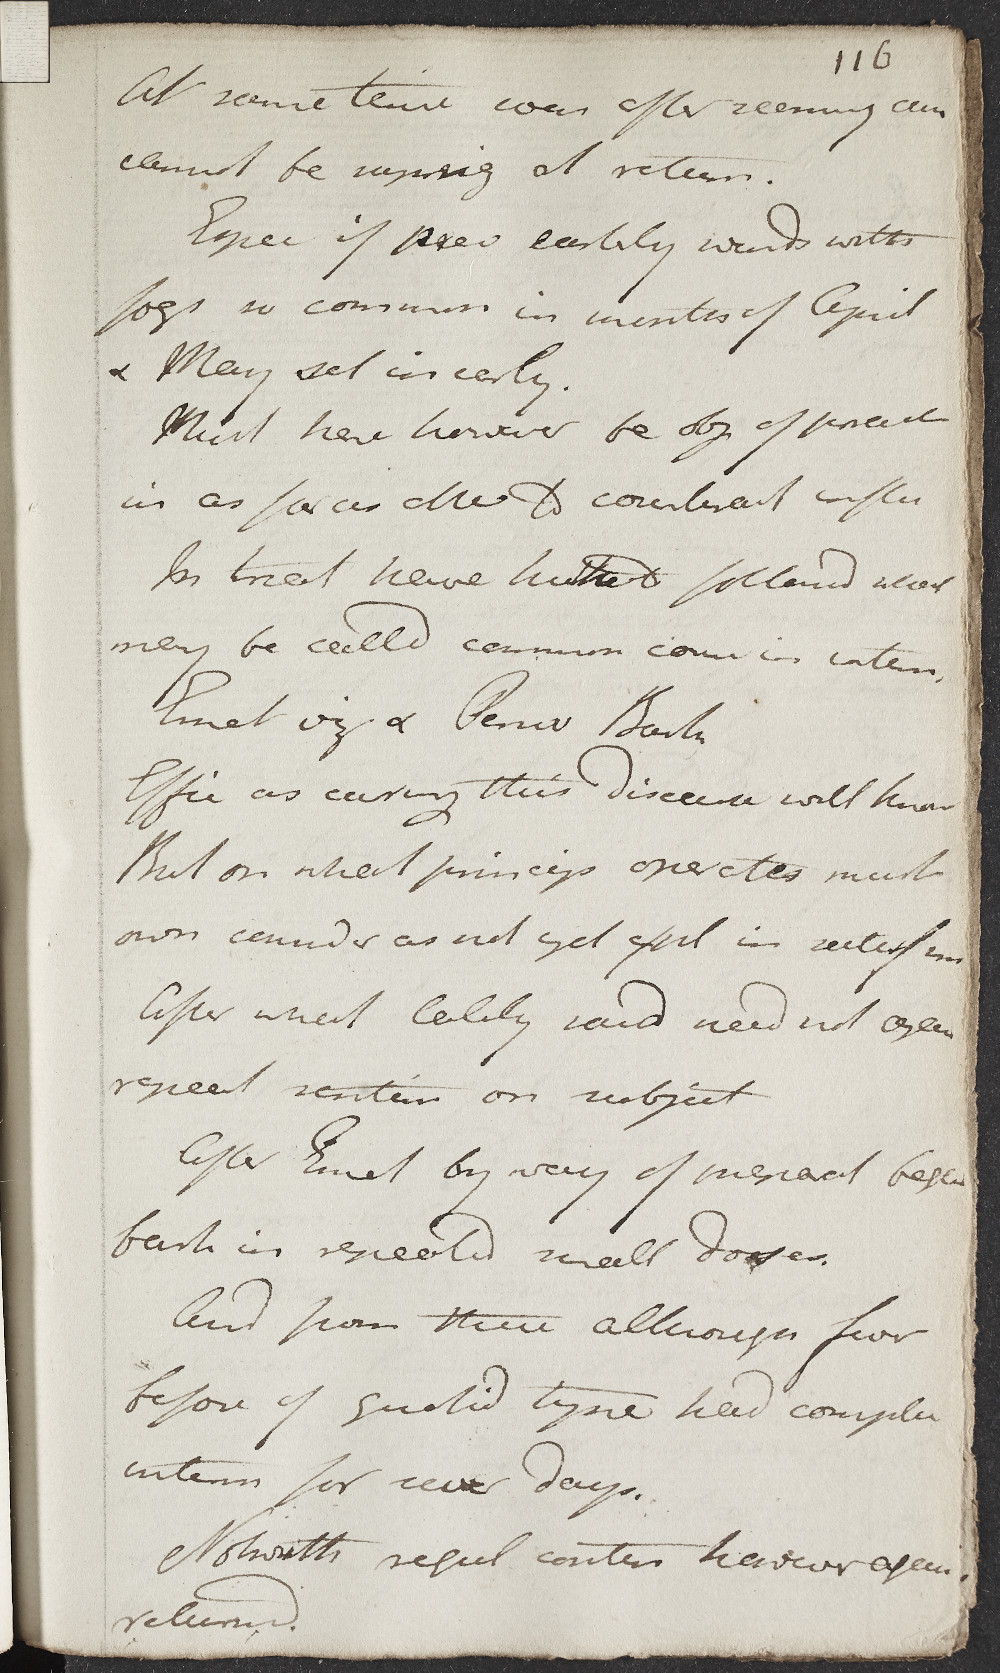 116
At same time even after seeming cure
cannot be surprig at return.
Espec if prev easterly winds with
fogs so common in months of April
& May set in early.
Must here however be obj of pract
in as far as able to counteract influ
In treat have hitherto followd what
may be calld common cour in interm.
Emet viz & Peruv Bark
Effic as curing this Disease well know
But on what princip operates must
own consider as not yet expl in satisf m
After what lately said need not again
repeat sentim on subject
After Emet by way of preparat began
bark in repeatd small doses.
And from these although fever
before of quotid type had complet
interm for sever days.
Notwith regul contin however again
returnd.